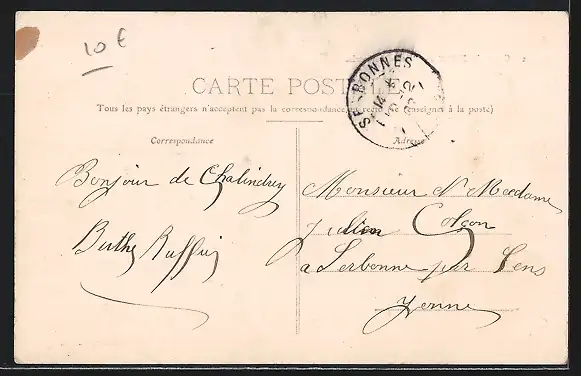 10 €
CARTE POSTALE
Tous les pays étrangers n'acceptent pas la correspondance au recto (Se renseigner à la poste)
SERBONNES
Correspondance
Adresse
Bonjour de Chalindrey
Berthe Ruffin
Monsieur & Madame
Julien Colson
a Serbonne par Sens
Yonne